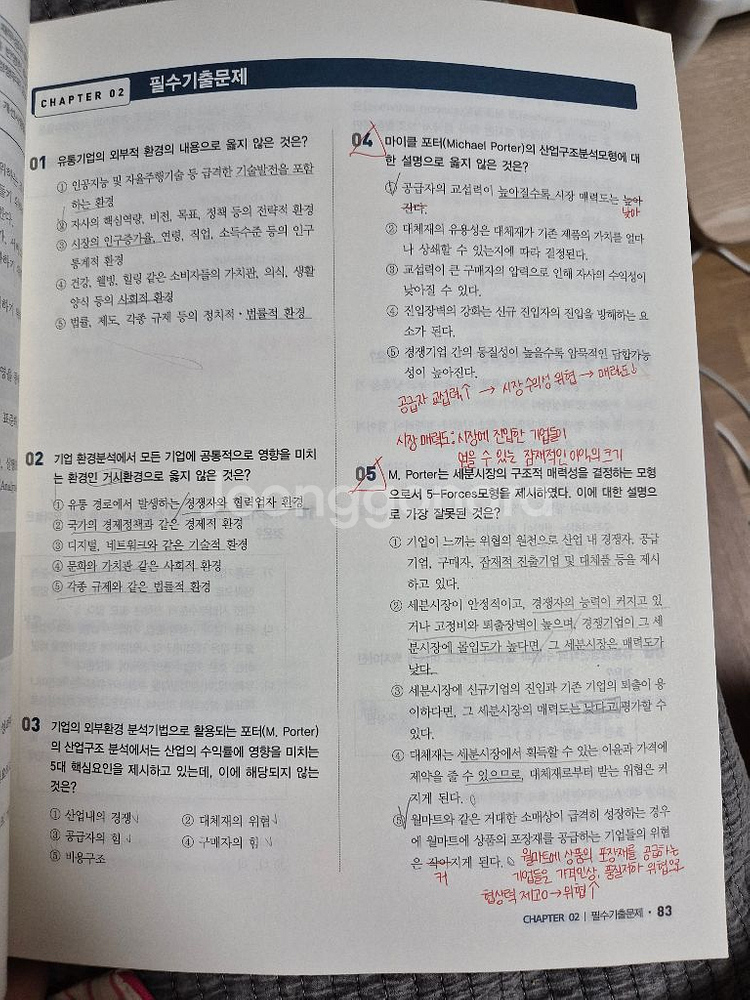 CHAPTER 02
필수기출문제
01 유통기업의 외부적 환경의 내용으로 옳지 않은 것은?
① 인공지능 및 자율주행기술 등 급격한 기술발전을 포함
하는 환경
② 자사의 핵심역량, 비전, 목표, 정책 등의 전략적 환경
③ 시장의 인구증가율, 연령, 직업, 소득수준 등의 인구
통계적 환경
④ 건강, 웰빙, 힐링 같은 소비자들의 가치관, 의식, 생활
양식 등의 사회적 환경
⑤ 법률, 제도, 각종 규제 등의 정치적·법률적 환경
02 기업 환경분석에서 모든 기업에 공통적으로 영향을 미치
는 환경인 거시환경으로 옳지 않은 것은?
① 유통 경로에서 발생하는 경쟁자와 협력업자 환경
② 국가의 경제정책과 같은 경제적 환경
③ 디지털, 네트워크와 같은 기술적 환경
④ 문화와 가치관 같은 사회적 환경
⑤ 각종 규제와 같은 법률적 환경
03 기업의 외부환경 분석기법으로 활용되는 포터(M. Porter)
의 산업구조 분석에서는 산업의 수익률에 영향을 미치는
5대 핵심요인을 제시하고 있는데, 이에 해당되지 않는
것은?
① 산업내의 경쟁 ② 대체재의 위협
③ 공급자의 힘 ④ 구매자의 힘
⑤ 비용구조
04 마이클 포터(Michael Porter)의 산업구조분석모형에 대
한 설명으로 옳지 않은 것은?
① 공급자의 교섭력이 높아질수록 시장 매력도는 높아
진다. 낮아
② 대체재의 유용성은 대체재가 기존 제품의 가치를 얼마
나 상쇄할 수 있는지에 따라 결정된다.
③ 교섭력이 큰 구매자의 압력으로 인해 자사의 수익성이
낮아질 수 있다.
④ 진입장벽의 강화는 신규 진입자의 진입을 방해하는 요
소가 된다.
⑤ 경쟁기업 간의 동질성이 높을수록 암묵적인 담합가능
성이 높아진다.
공급자 교섭력↑ → 시장 수익성 위협 → 매력도↓
시장 매력도: 시장에 진입한 기업들이
얻을 수 있는 잠재적인 이익의 크기
05 M. Porter는 세분시장의 구조적 매력성을 결정하는 모형
으로서 5-Forces모형을 제시하였다. 이에 대한 설명으
로 가장 잘못된 것은?
① 기업이 느끼는 위협의 원천으로 산업 내 경쟁자, 공급
기업, 구매자, 잠재적 진출기업 및 대체품 등을 제시
하고 있다.
② 세분시장이 안정적이고, 경쟁자의 능력이 커지고 있
거나 고정비와 퇴출장벽이 높으며, 경쟁기업이 그 세
분시장에 몰입도가 높다면, 그 세분시장은 매력도가
낮다.
③ 세분시장에 신규기업의 진입과 기존 기업의 퇴출이 용
이하다면, 그 세분시장의 매력도는 낮다고 평가할 수
있다.
④ 대체재는 세분시장에서 획득할 수 있는 이윤과 가격에
제약을 줄 수 있으므로, 대체재로부터 받는 위협은 커
지게 된다.
⑤ 월마트와 같은 거대한 소매상이 급격히 성장하는 경우
에 월마트에 상품의 포장재를 공급하는 기업들의 위협
은 작아지게 된다. 월마트에 상품의 포장재를 공급하는
커 기업들은 가격인상, 품질저하 위협으로
협상력 제고 → 위협↑
CHAPTER 02 | 필수기출문제 · 83